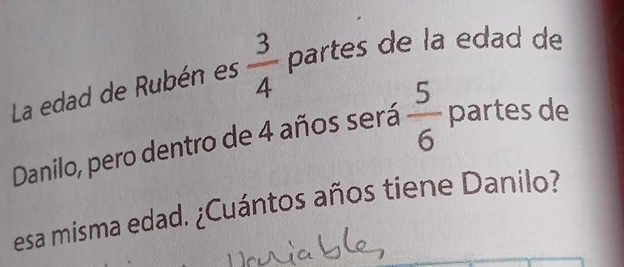 La edad de Rubén es 3/4 partes de la edad de
Danilo, pero dentro de 4 años será 5/6 partes de
esa misma edad. ¿Cuántos años tiene Danilo?
Variables